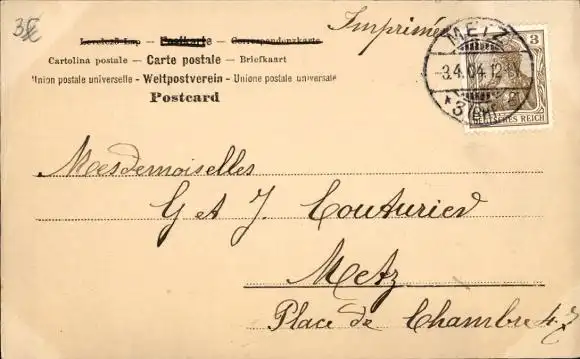 3€
Imprimé
Levelező-Lap — Postkarte — Correspondenzkarte
Cartolina postale — Carte postale — Briefkaart
Union postale universelle - Weltpostverein - Unione postale universale
Postcard
METZ
3.4.04. 12-
* 3
3
DEUTSCHES REICH
Mesdemoiselles
G et J Couturier
Metz
Place de Chambre 47